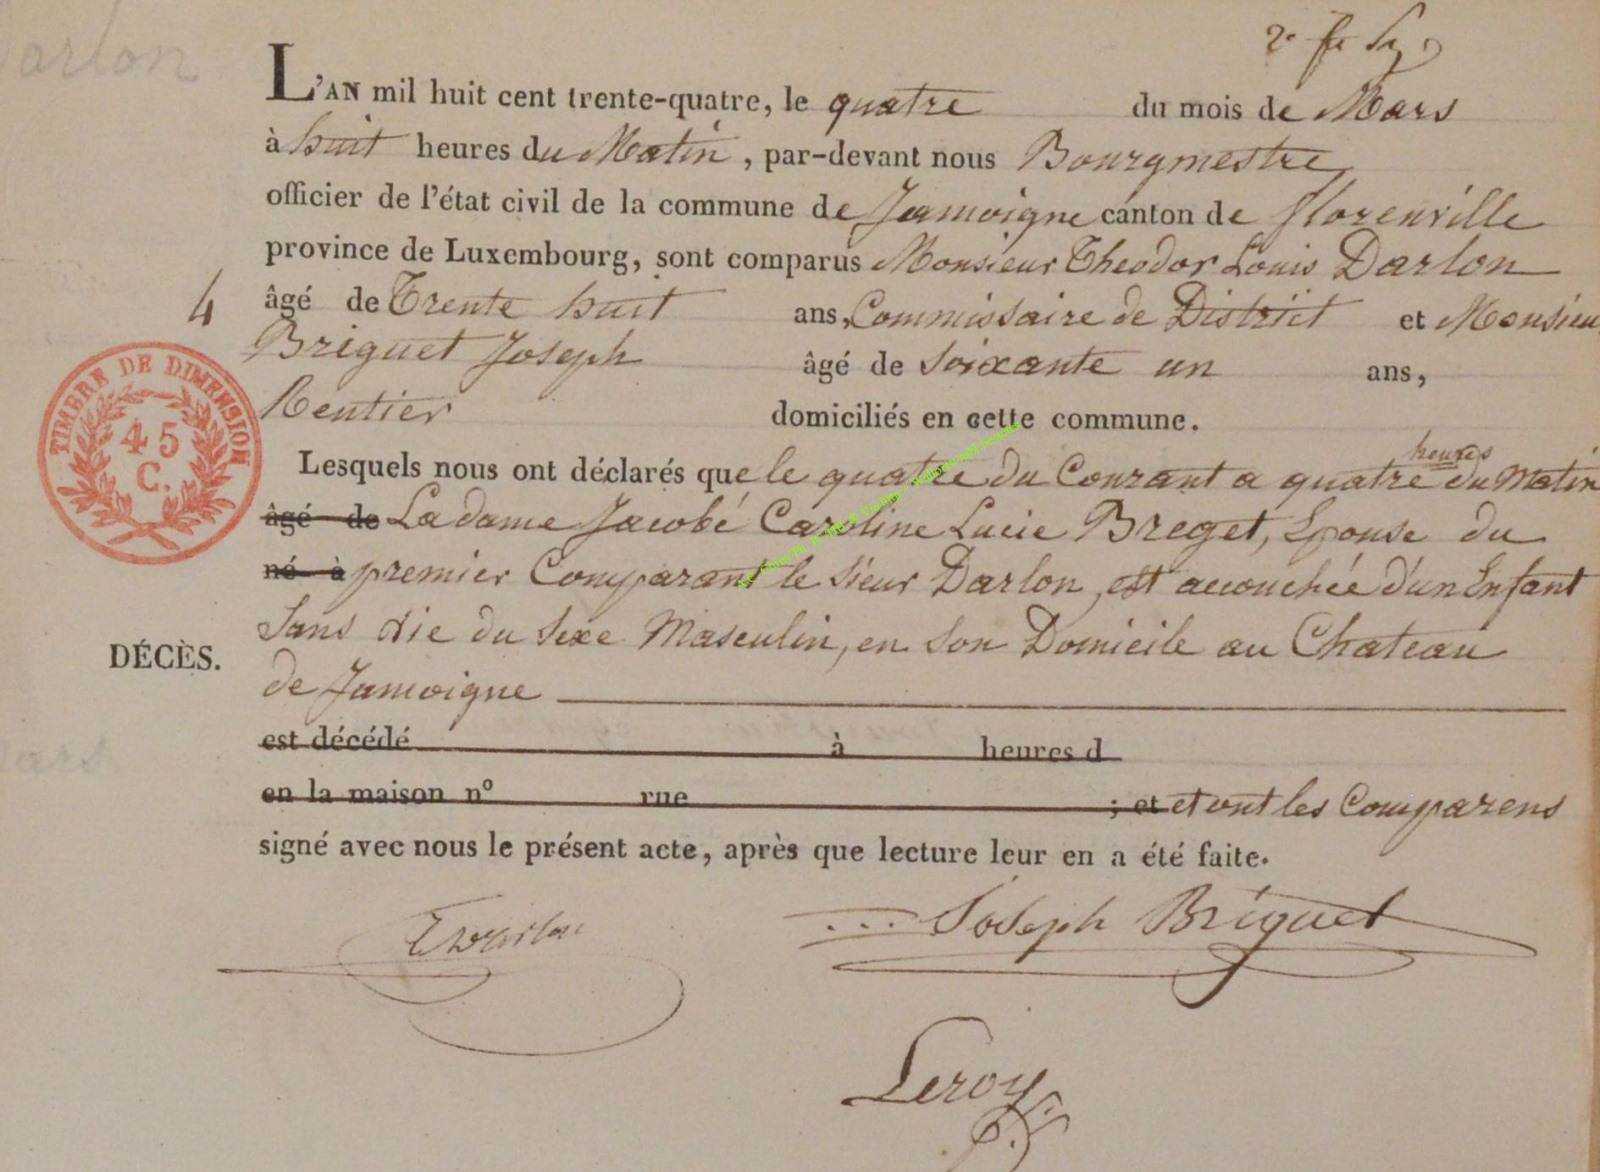 Darlon
L'AN mil huit cent trente-quatre, le quatre du mois de Mars
à huit heures du Matin, par-devant nous Bourgmestre
officier de l'état civil de la commune de Jamoigne canton de florenville
province de Luxembourg, sont comparus Monsieur Theodor Louis Darlon
4
âgé de Trente huit ans, Commissaire de District et Monsieur
Briguet Joseph âgé de Soixante un ans,
Rentier domiciliés en cette commune.
TIMBRE DE DIMENSION
45
C.
Lesquels nous ont déclarés que le quatre du Courant a quatre heures du Matin
âgé de La dame Jacobé Caroline Lucie Breget, Epouse du
né à premier Comparant le sieur Darlon, est accouchée d'un Enfant
Sans vie du Sexe Masculin, en Son Domicile au Chateau
DÉCÈS.
de Jamoigne
est décédé à heures d
en la maison n° rue ; et et ont les Comparens
signé avec nous le présent acte, après que lecture leur en a été faite.
Joseph Briguet
Leroy